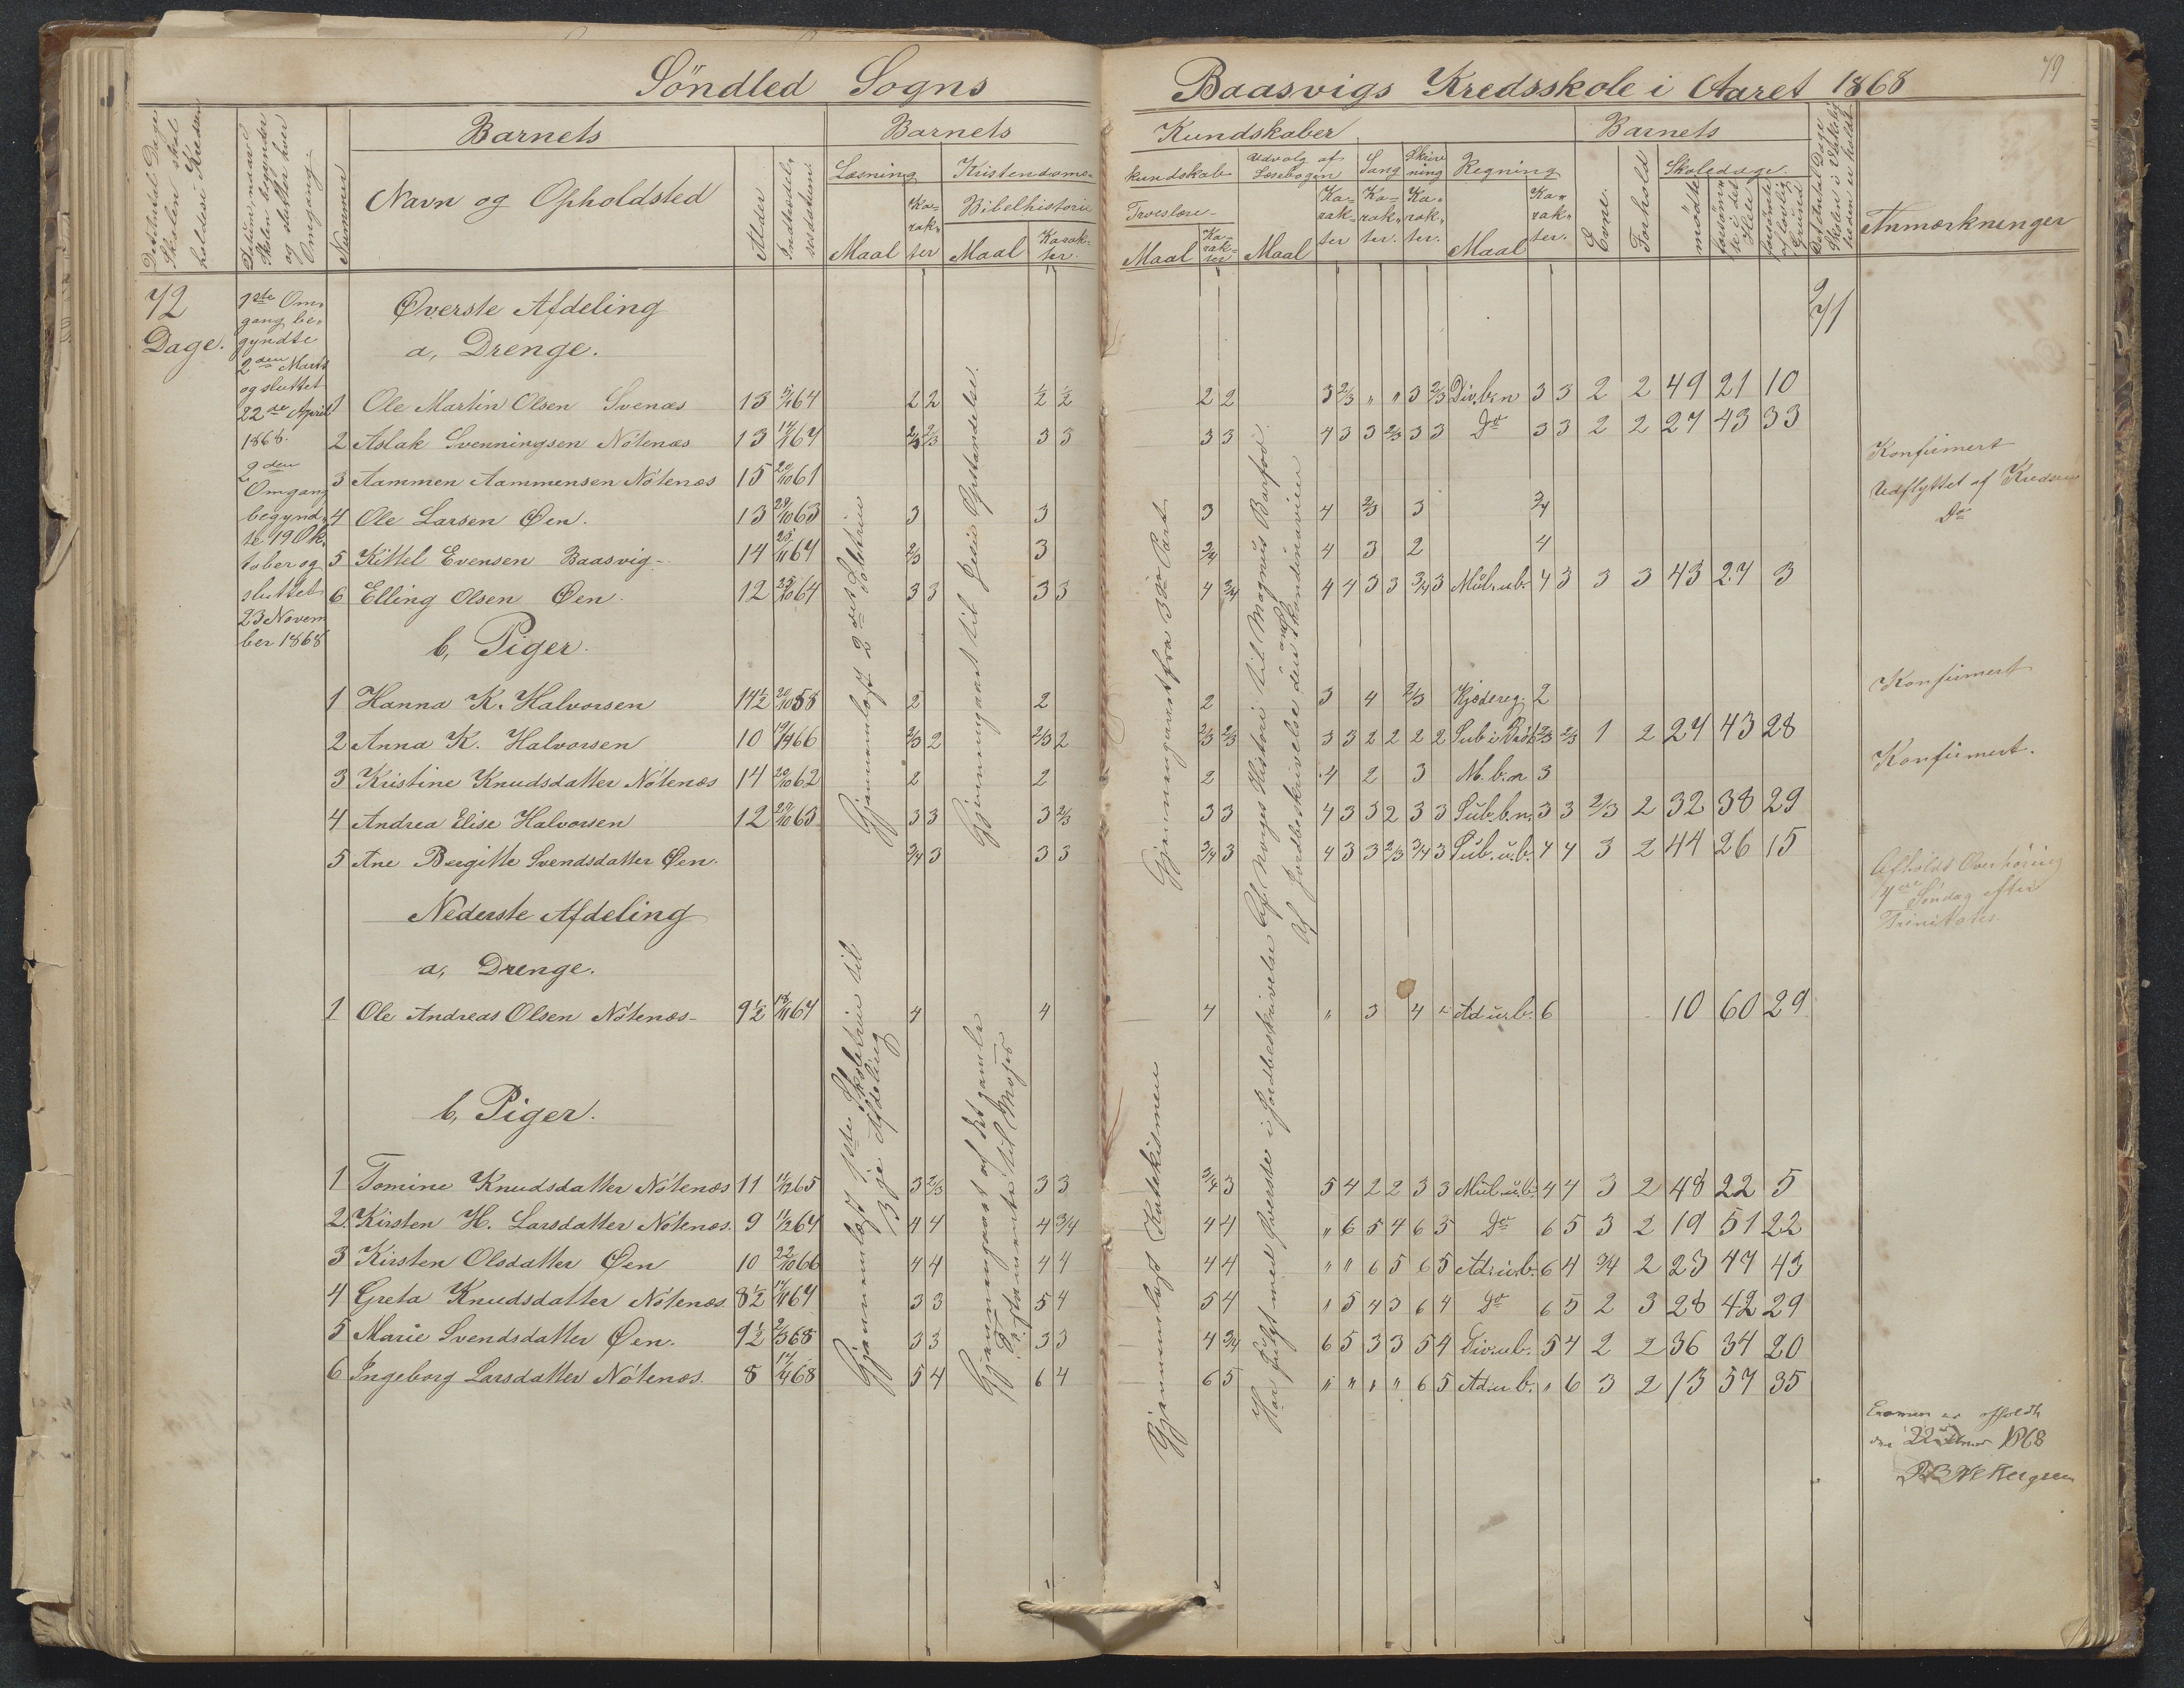 Söndled Sogns
Baasvigs Kredsskole i Aaret 1868
79
Det Antal Dage Skolen skal holdes i Kredsen
Datum, naar Skolen begynder og slutter hver Omgang.
Nummer
Barnets
Navn og Opholdsted
Alder
Indtrædelsesdatum
Barnets
Læsning
Maal
Karakter
Kristendoms-
Bibelhistorie
Maal
Karakter
Kundskaber
kundskab
Troeslære
Maal
Karakter
Udvalg af Læsebogen
Maal
Karakter
Sang
Karakter.
Skrivning
Karakter.
Regning
Maal
Karakter.
Barnets
Evne.
Forhold
Skoledage.
mødte
forsømte i det Hele
forsømte af lovlig Grund
Det Antal Dage Skolen i Virkeligheden er holdt
Anmærkninger
72 Dage.
1ste Omgang begyndte 2den Marts og sluttet 22de April 1868.
2den Omgang begyndte 19 Oktober og sluttet 23 November 1868
Øverste Afdeling
a, Drenge.
1 Ole Martin Olsen Svenæs 13 5/1164 2 2 1/2 1/2 2 2 3 2/3 " " 3 2/3 Div. b. n 3 3 2 2 49 21 10
2 Aslak Svenningsen Nótenæs 13 14/1164 2/3 2/3 3 3 3 3 4 3 3 2/3 3 3 Do 3 3 2 2 27 43 33
3 Aammen Aammensen Nótenæs 15 20/1061 Konfirmert
4 Ole Larsen Øen. 13 28/1063 3 3 3 4 2/3 3 3/4 Udflyttet af Kredsen
5 Kittel Evensen Baasvig- 14 25/1164 2/3 3 3/4 4 3 2 4 Do
6 Elling Olsen Øen. 12 25/1064 3 3 3 3 4 3/4 4 4 3 3 3/4 3 Mul. ub. 4 3 3 3 43 27 3
b, Piger.
1 Hanna K. Halvorsen 14 1/2 20/1058 2 2 2 3 4 2/3 Kjædereg. 2 Konfirmert
2 Anna K. Halvorsen 10 19/1466 2/3 2 2/3 2 2/3 2/3 3 3 2 2 2 2 Sub i Brók 2/3 2/3 1 2 27 43 28
3 Kristine Knudsdatter Nótenæs 14 20/1062 2 2 2 4 2 3 M. b. n 3 Konfirmert.
4 Andrea Elise Halvorsen 12 29/1063 3 3 3 2/3 3 3 4 3 3 2 3 3 Sub. b. n. 3 3 2/3 2 32 38 29
5 Ane Bergitte Svendsdatter Øen. 3/4 3 3 3 3/4 3 4 3 3 2/3 3/4 3 Sub. u. b. 4 4 3 2 44 26 15
Gjennemløst 2det Boletrin
Gjennemgaaet til Jesu Opstandelse.
Gjennemgaaet fra 3die Part
Af Norges Historie til Magnus Barfod.
Af Jordbeskrivelse den Skandinaviske
Afholdt Overhöring 4de Søndag efter Trinitatis.
Nederste Afdeling
a, Drenge.
1 Ole Andreas Olsen Nótenæs- 9 1/2 18/1164 4 4 4 " 3 4 " Ad ub. 6 10 60 29
b, Piger.
1 Tomine Knudsdatter Nótenæs 11 11/1265 3 2/3 3 3 3/4 3 5 4 2 2 3 3 Mul. ub. 4 4 3 2 48 22 5
2. Kirsten H. Larsdatter Nótenæs. 9 11/1264 4 4 4 3/4 4 4 " 6 5 4 6 5 Do 6 5 3 2 19 51 22
3 Kirsten Olsdatter Øen 10 22/1066 4 4 4 4 4 4 " " 6 5 6 5 Ad. ub. 6 4 3/4 2 23 47 43
4 Greta Knudsdatter Nótenæs. 8 1/2 14/1167 3 3 5 4 5 4 " 5 4 3 6 4 Do 6 5 2 3 28 42 29
5 Marie Svendsdatter Øen. 9 1/2 2/368 3 3 3 3 4 3/4 6 5 3 3 5 4 Div. ub. 5 4 2 2 36 34 20
6 Ingeborg Larsdatter Nótenæs. 8 14/468 5 4 6 4 6 5 " " " " 6 5 Ad. u b. " 6 3 2 13 57 35
Gjennemløst 1ste Skoletrin til 3dje Afdeling
Gjennemgaaet af det gamle Testamente til Moses
Gjennemløst Katekismen
Har fulgt med Øverste i Jordbeskrivelse
Examen er afholdt
1868